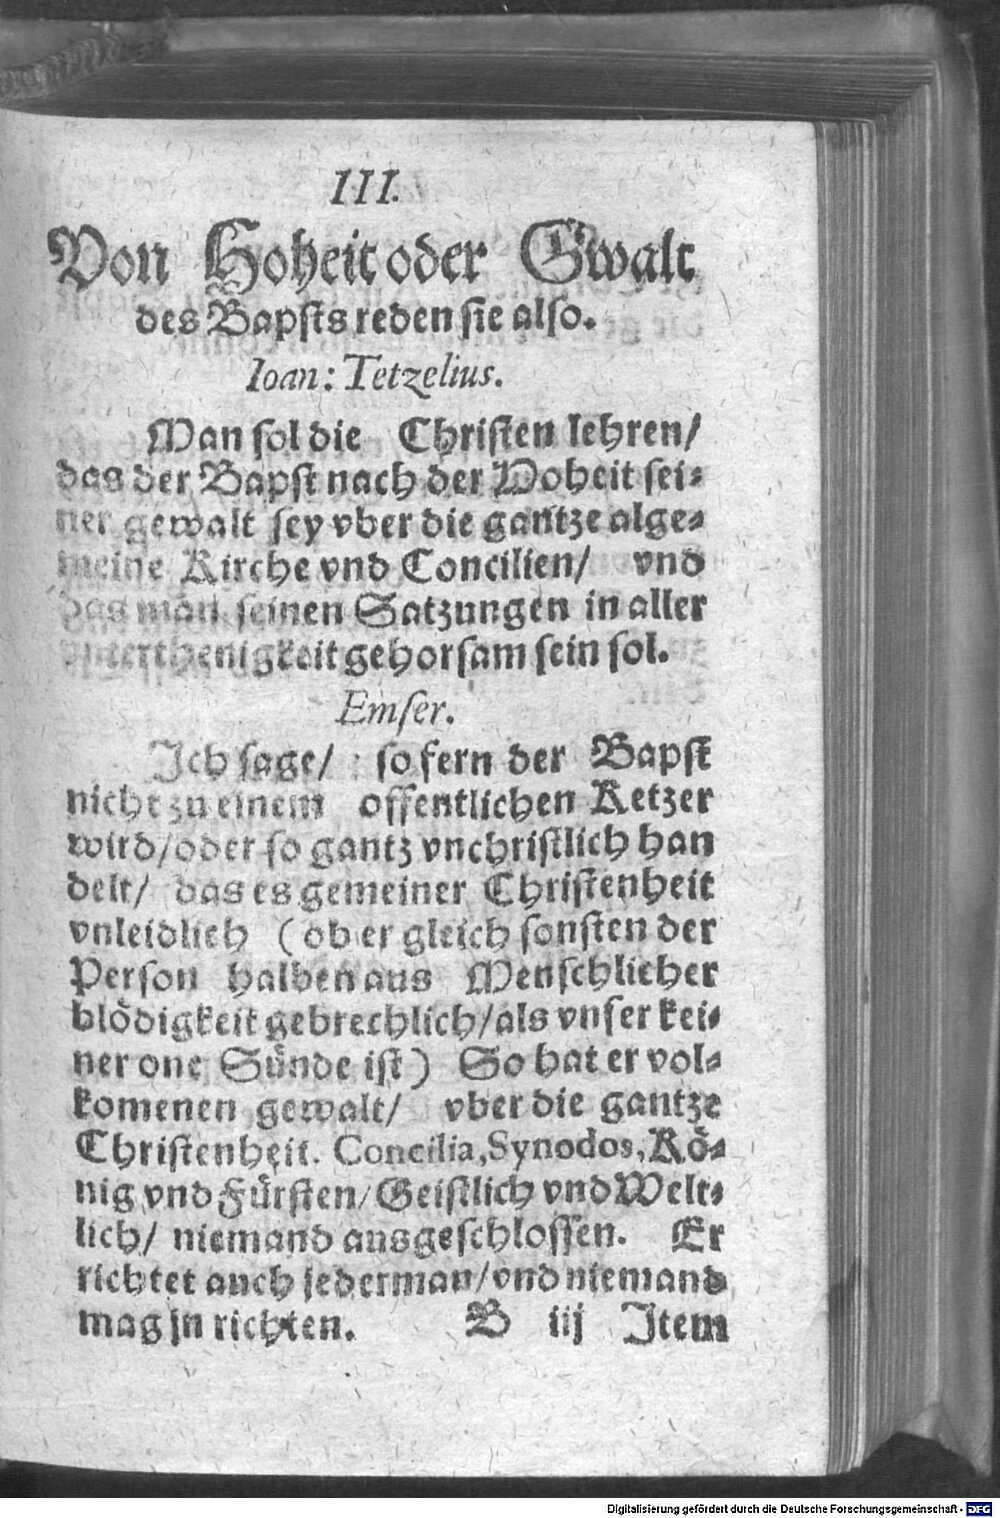 III.
Von Hoheit oder Gwalt
des Bapsts reden sie also.
Ioan: Tetzelius.
Man sol die Christen lehren/
das der Bapst nach der Hoheit sei-
ner gewalt sey vber die gantze alge-
meine Kirche vnd Concilien/ vnd
das man seinen Satzungen in aller
vnterthenigkeit gehorsam sein sol.
Emser.
Ich sage/ so fern der Bapst
nicht zu einem offentlichen Ketzer
wird/oder so gantz vnchristlich han
delt/ das es gemeiner Christenheit
vnleidlich (ob er gleich sonsten der
Person halben aus Menschlicher
blödigkeit gebrechlich/als vnser kei-
ner one Sünde ist) So hat er vol-
komenen gewalt/ vber die gantze
Christenheit. Concilia, Synodos, Kö-
nig vnd Fürsten/Geistlich vnd Welt-
lich/ niemand ausgeschlossen. Er
richtet auch jederman/vnd niemand
mag jn richten. B iij Item
Digitalisierung gefördert durch die Deutsche Forschungsgemeinschaft - DFG